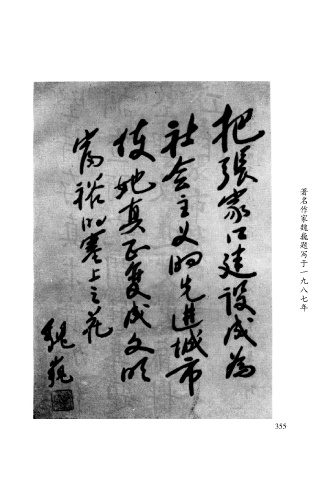 把張家口建设成为
社会主义的先进城市
使她真正变成文明
富裕的塞上之花
魏巍
著名作家魏巍题写于一九八七年
355